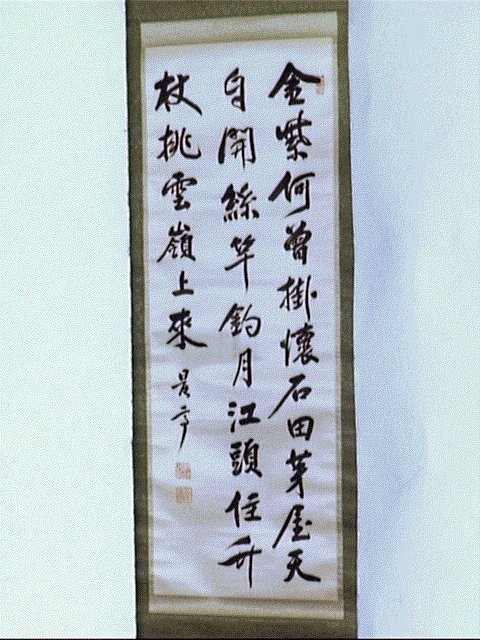 金紫何曾掛懷石田茅屋天
自開絲竿釣月江頭住竹
杖挑雲嶺上來